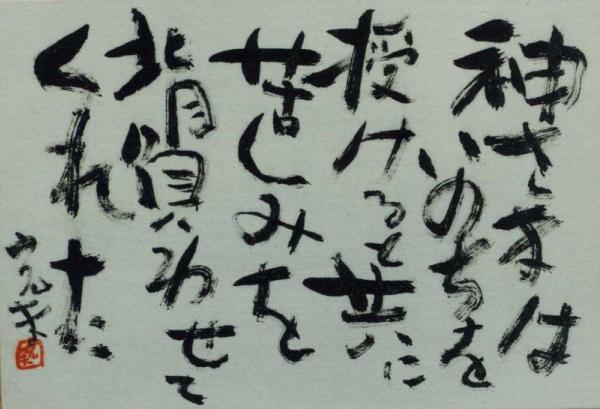 神さまは
いのちを
授けると共に
苦しみを
背負わせて
くれた